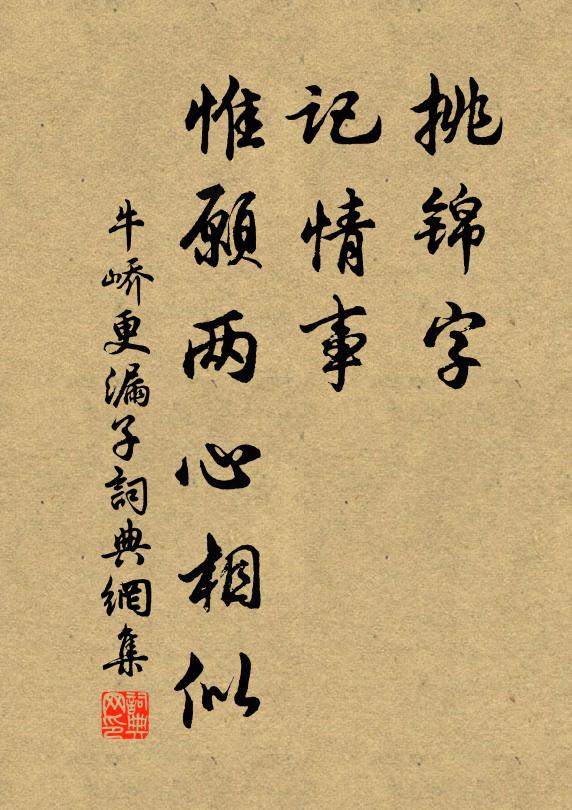 挑锦字
记情事
惟願两心相似
牛峤更漏子詞典網集
詞典网印